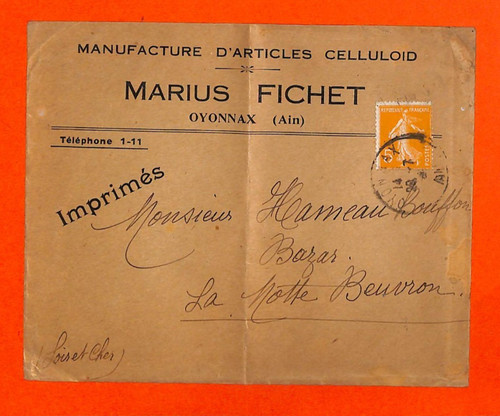 MANUFACTURE D'ARTICLES CELLULOID
MARIUS FICHET
OYONNAX (Ain)
Téléphone 1-11
Imprimés
Monsieur Hameau Bouffon
Bazar.
La Motte Beuvron.
(Loir et Cher)